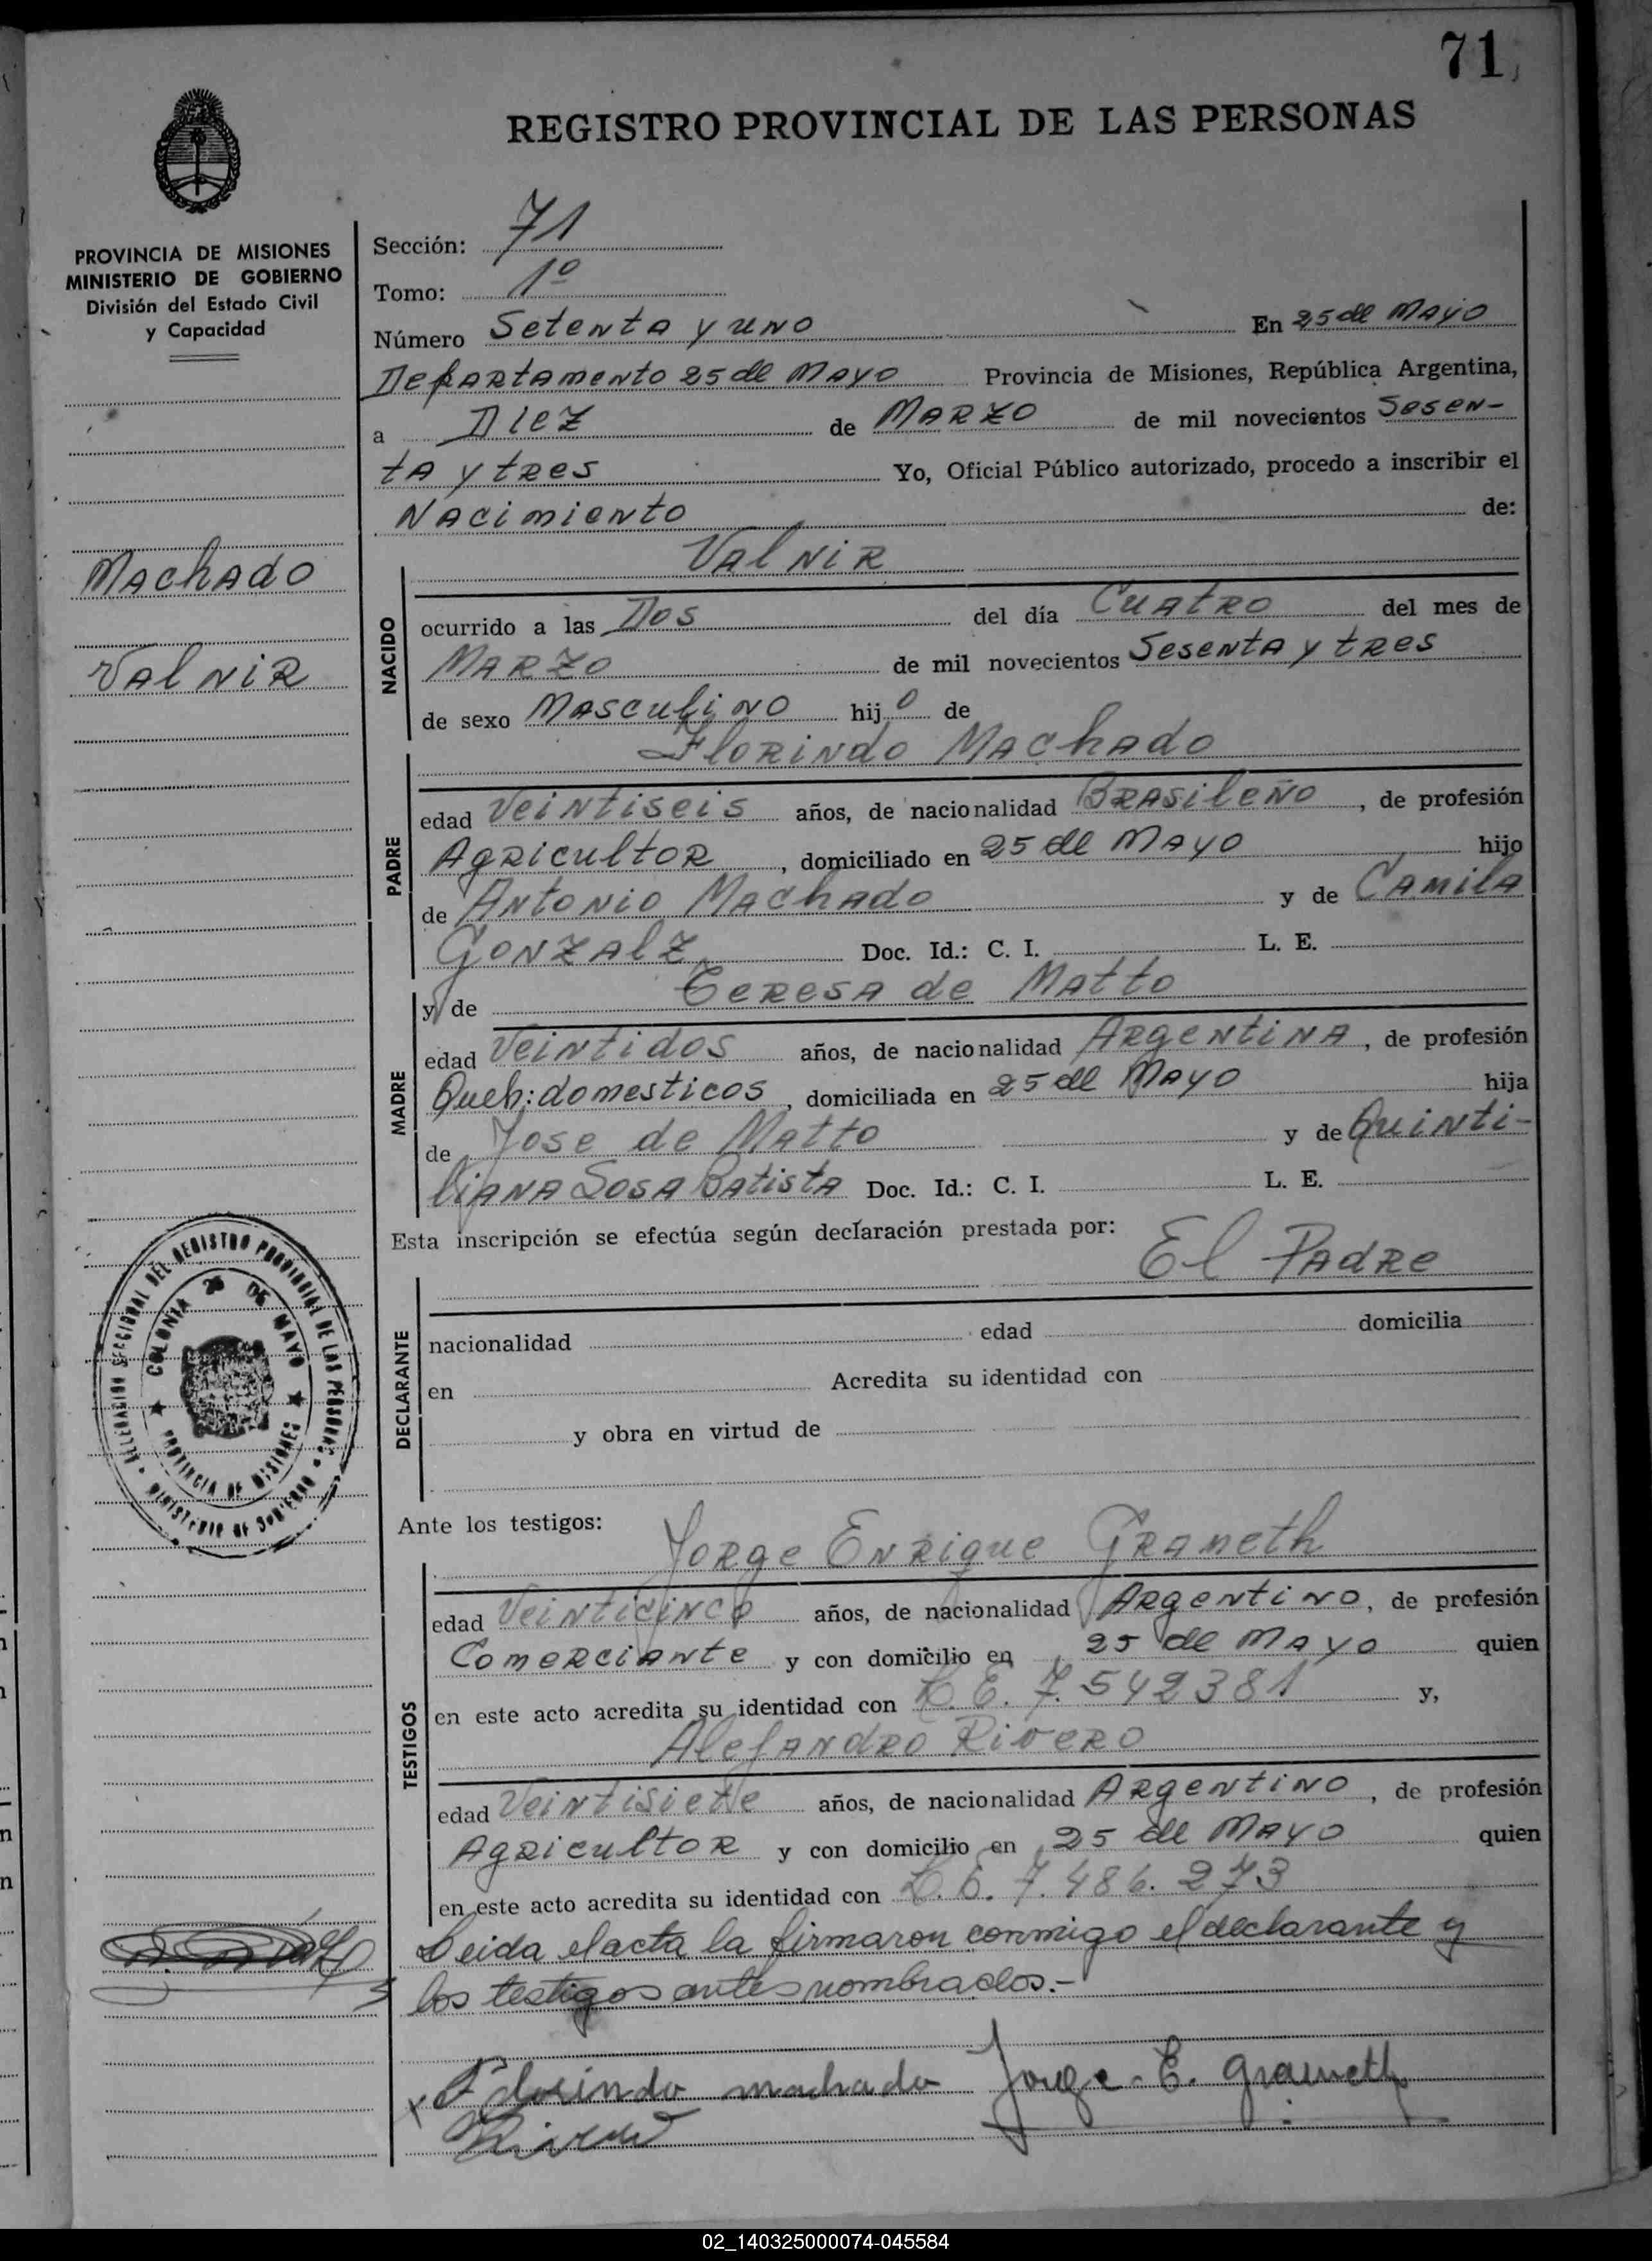 71
REGISTRO PROVINCIAL DE LAS PERSONAS
PROVINCIA DE MISIONES
MINISTERIO DE GOBIERNO
División del Estado Civil
y Capacidad
Sección: 71
Tomo: 1º
Número Setenta y uno En 25 de Mayo
Departamento 25 de Mayo Provincia de Misiones, República Argentina,
a Diez de Marzo de mil novecientos Sesen-
ta y tres Yo, Oficial Público autorizado, procedo a inscribir el
Nacimiento de:
Valnir
Machado
Valnir
NACIDO
ocurrido a las Dos del día Cuatro del mes de
Marzo de mil novecientos Sesenta y tres
de sexo Masculino hijo de
Florindo Machado
PADRE
edad Veintiseis años, de nacionalidad Brasileño, de profesión
Agricultor, domiciliado en 25 de Mayo hijo
de Antonio Machado y de Camila
Gonzalz Doc. Id.: C. I. L. E.
y de Teresa de Matto
MADRE
edad Veintidos años, de nacionalidad Argentina, de profesión
Queh: domesticos, domiciliada en 25 de Mayo hija
de Jose de Matto y de Quinti-
liana Sosa Batista Doc. Id.: C. I. L. E.
Esta inscripción se efectúa según declaración prestada por:
El Padre
DECLARANTE
nacionalidad edad domicilia
en Acredita su identidad con
y obra en virtud de
DELEGACION SECCIONAL DEL REGISTRO PROVINCIAL DE LAS PERSONAS
MINISTERIO DE GOBIERNO
COLONIA 25 DE MAYO
PROVINCIA DE MISIONES
Ante los testigos:
Jorge Enrique Grameth
TESTIGOS
edad Veinticinco años, de nacionalidad Argentino, de profesión
Comerciante y con domicilio en 25 de Mayo quien
en este acto acredita su identidad con L. E. 7.542381 y,
Alejandro Rivero
edad Veintisiete años, de nacionalidad Argentino, de profesión
Agricultor y con domicilio en 25 de Mayo quien
en este acto acredita su identidad con L. E. 7.486.273
Leida el acta la firmaron conmigo el declarante y
los testigos antes nombrados.-
x Florindo machado Jorge E. Grameth
Rivero
02_140325000074-045584